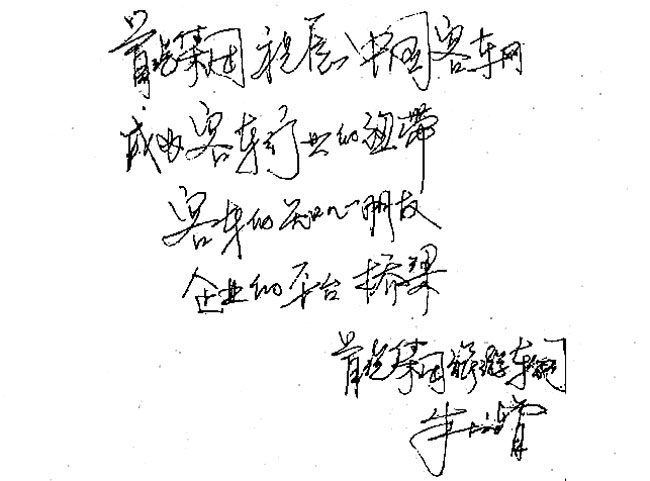 首汽集团祝愿中国客车网
成为客车行业的纽带
客车的知心朋友
企业的平台桥梁
首汽集团旅游车公司